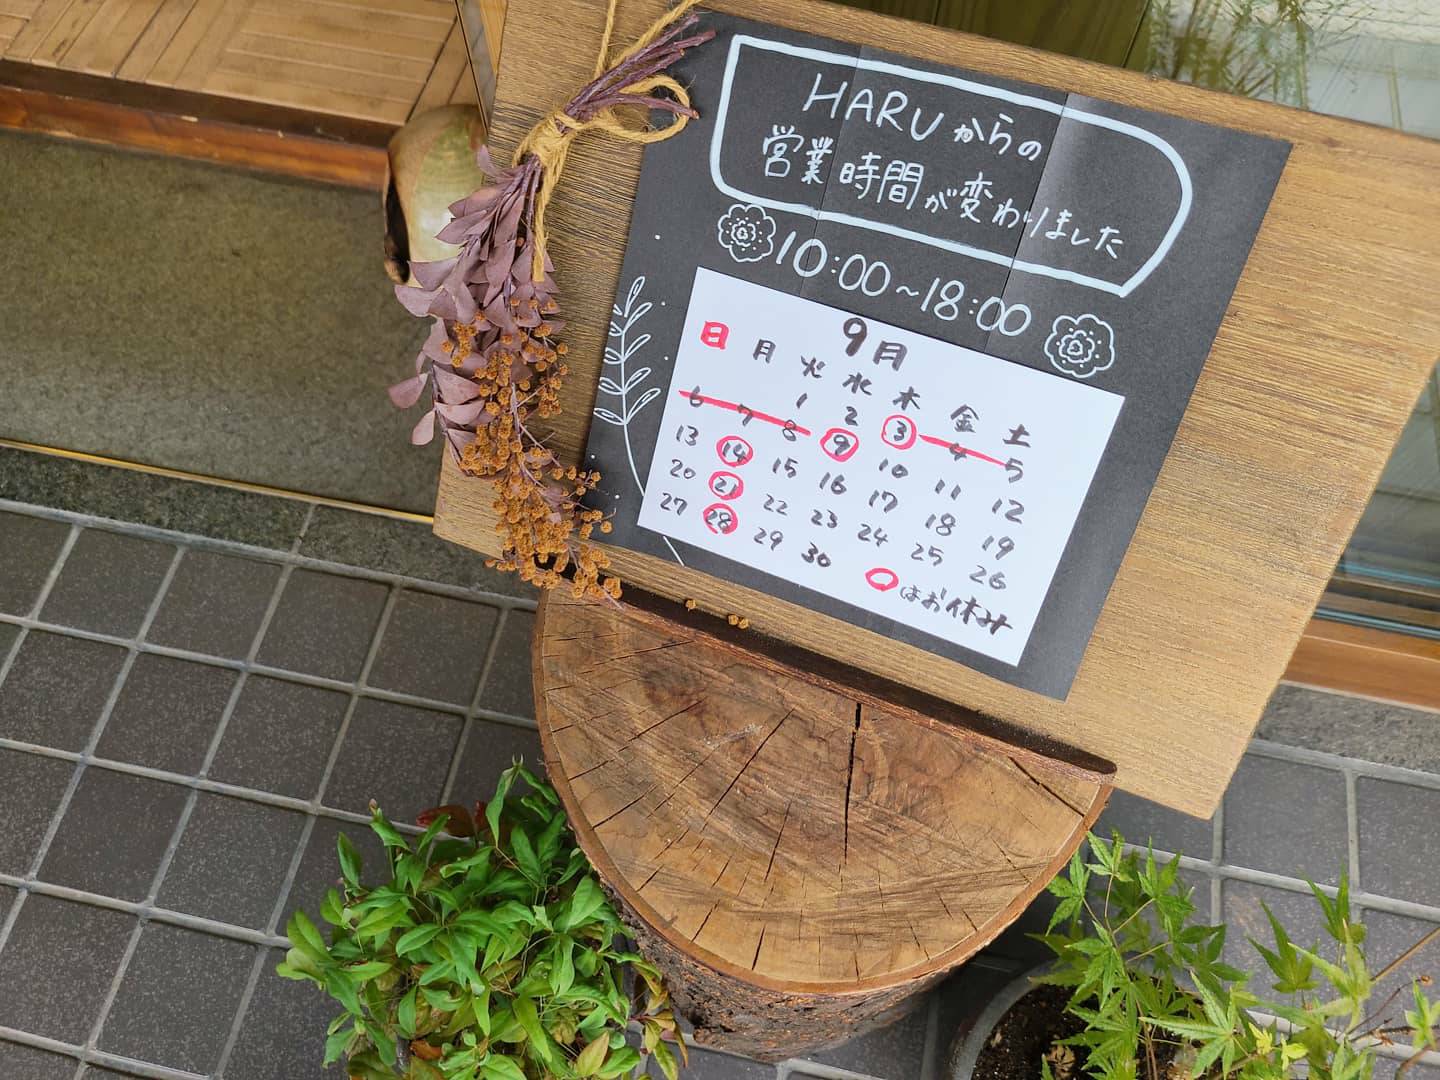 HARUからの
営業時間が変わりました
10:00~18:00
9月
日 月 火 水 木 金 土
1 2 3 4 5
6 7 8 9 10 11 12
13 14 15 16 17 18 19
20 21 22 23 24 25 26
27 28 29 30
はお休み